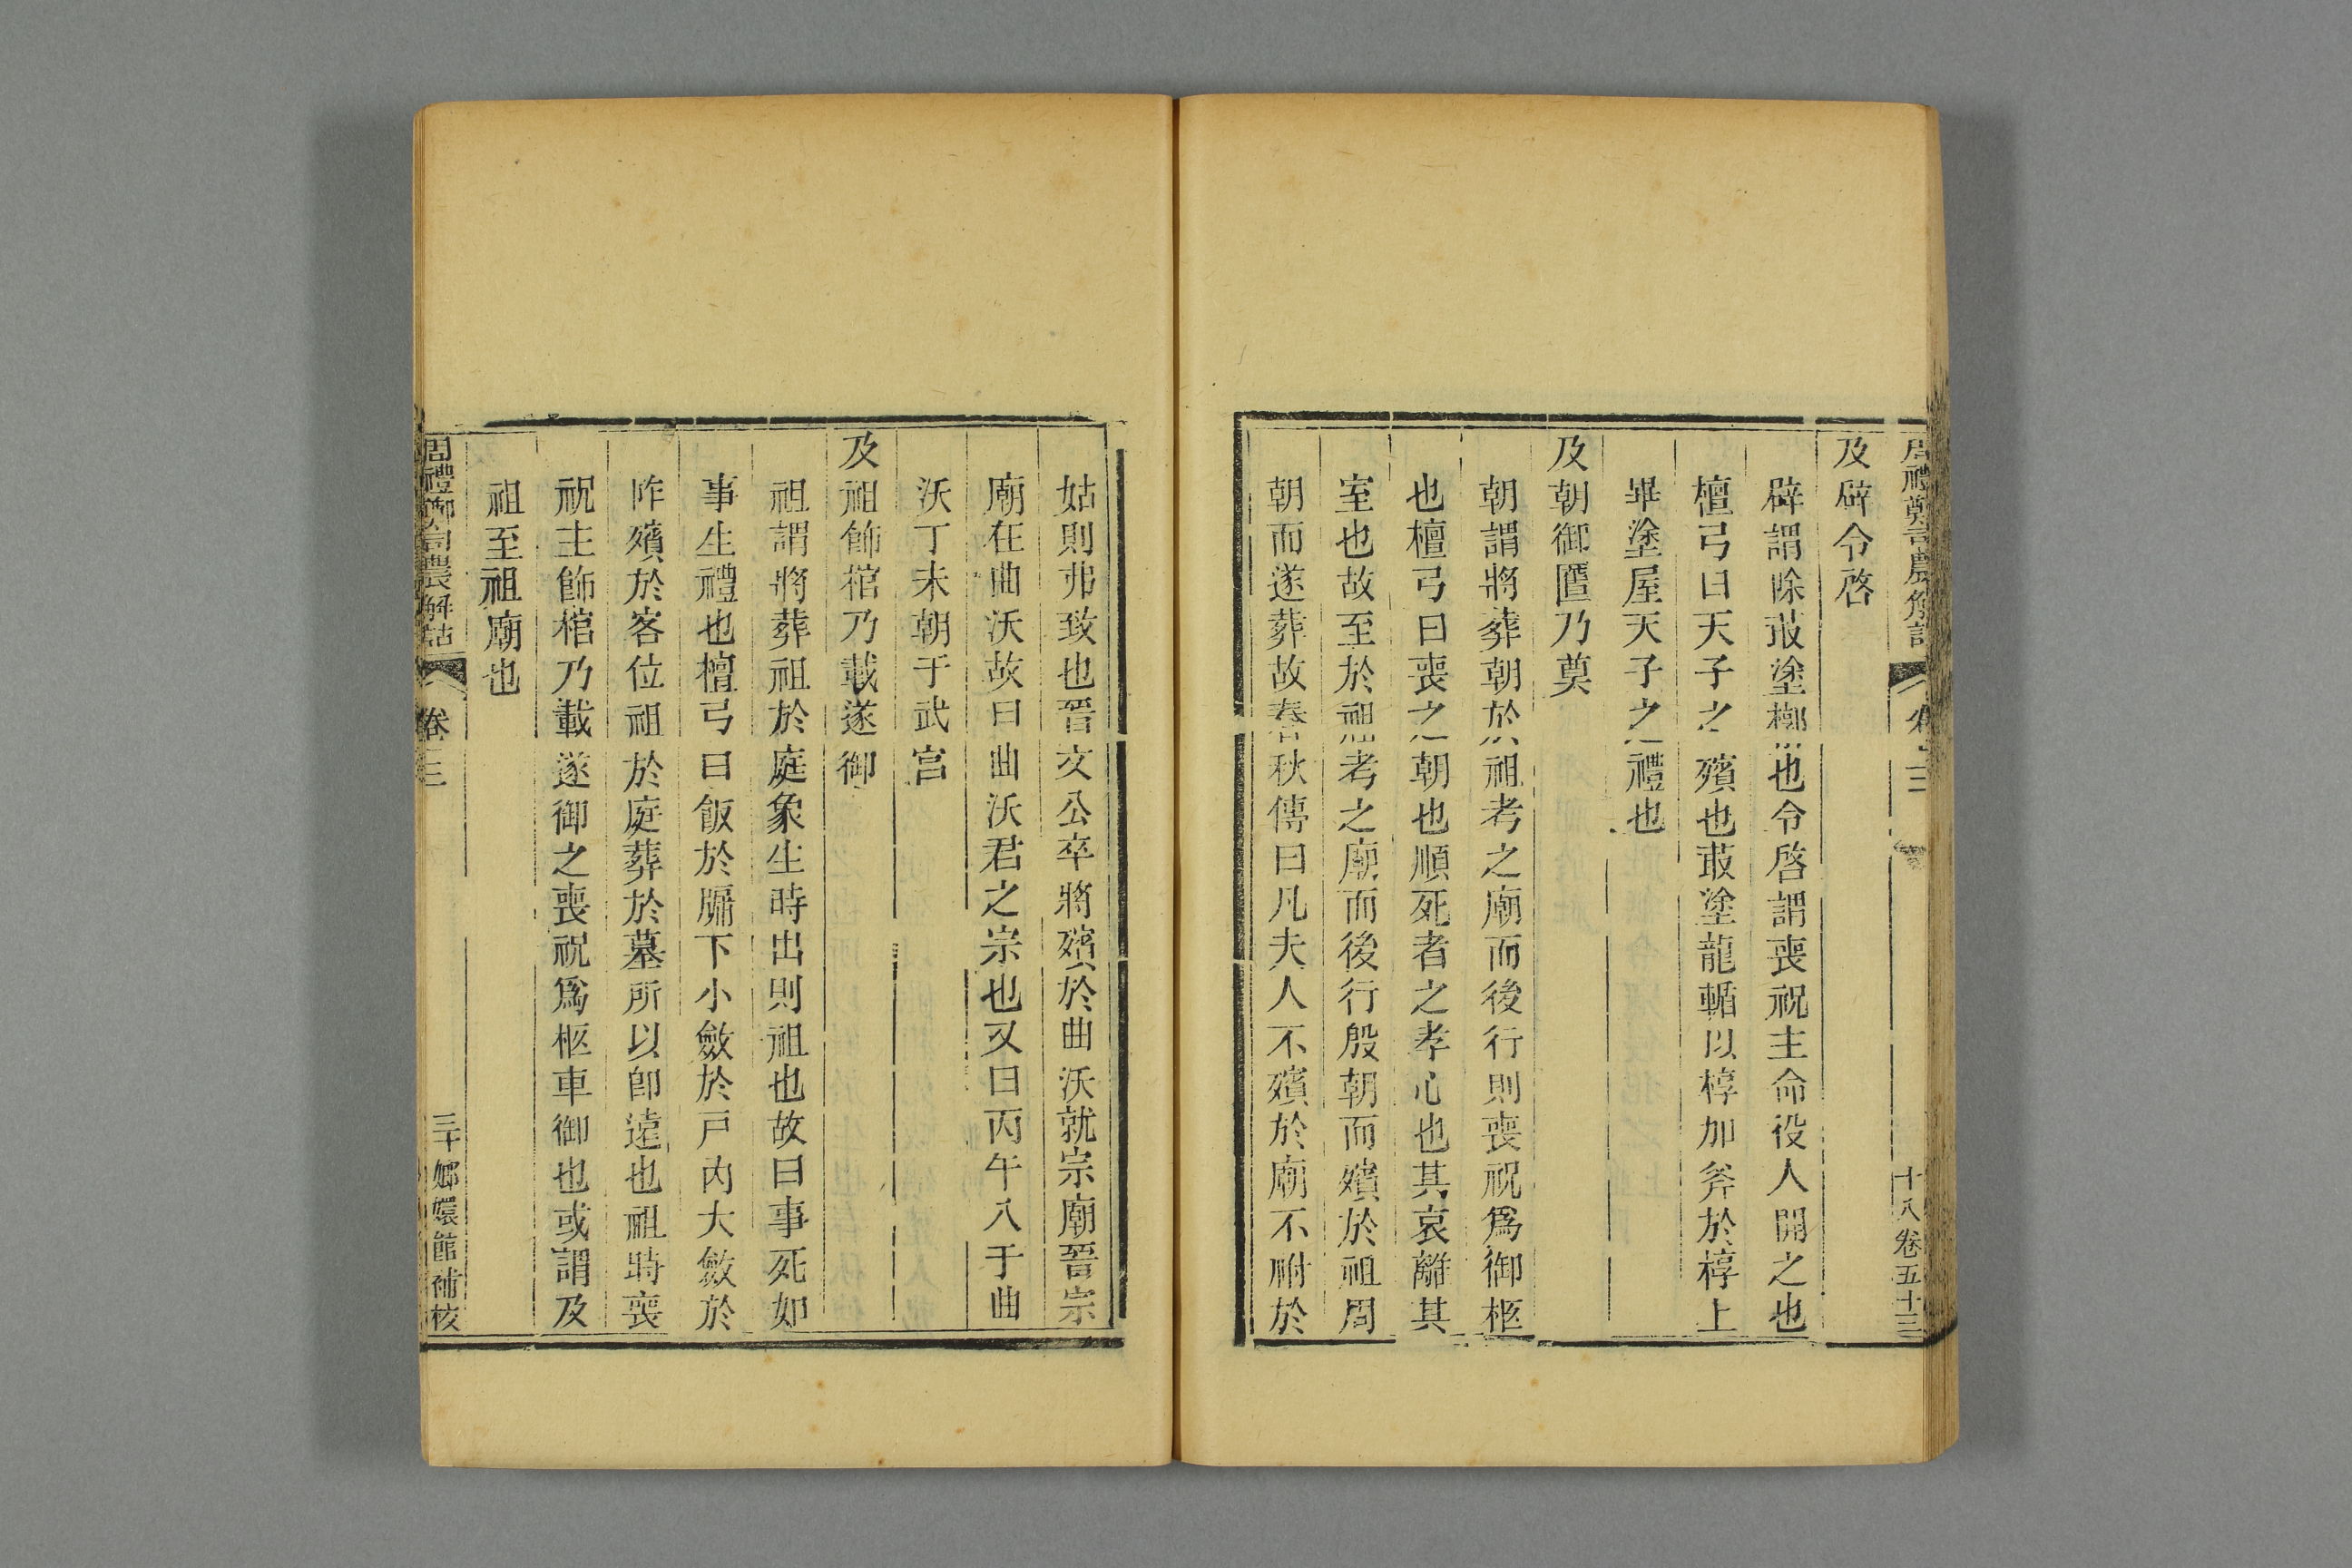 周禮鄭司農解詁 卷三 十八卷五十三
及辟令啓
辟謂除菆塗槨也令啓謂喪祝主命役人開之也
檀弓曰天子之殯也菆塗龍輴以椁加斧於椁上
畢塗屋天子之禮也
及朝御匶乃奠
朝謂將葬朝於祖考之廟而後行則喪祝爲御柩
也檀弓曰喪之朝也順死者之孝心也其哀離其
室也故至於祖考之廟而後行殷朝而殯於祖周
朝而遂葬故春秋傳曰凡夫人不殯於廟不祔於
姑則弗致也晉文公卒將殯於曲沃就宗廟晉宗
廟在曲沃故曰曲沃君之宗也又曰丙午入于曲
沃丁未朝于武宮
及祖飾棺乃載遂御
祖謂將葬祖於庭象生時出則祖也故曰事死如
事生禮也檀弓曰飯於牖下小斂於戸內大斂於
阼殯於客位祖於庭葬於墓所以卽遠也祖時喪
祝主飾棺乃載遂御之喪祝爲柩車御也或謂及
祖至祖廟也
周禮鄭司農解詁 卷三 三十 嫏嬛館補校